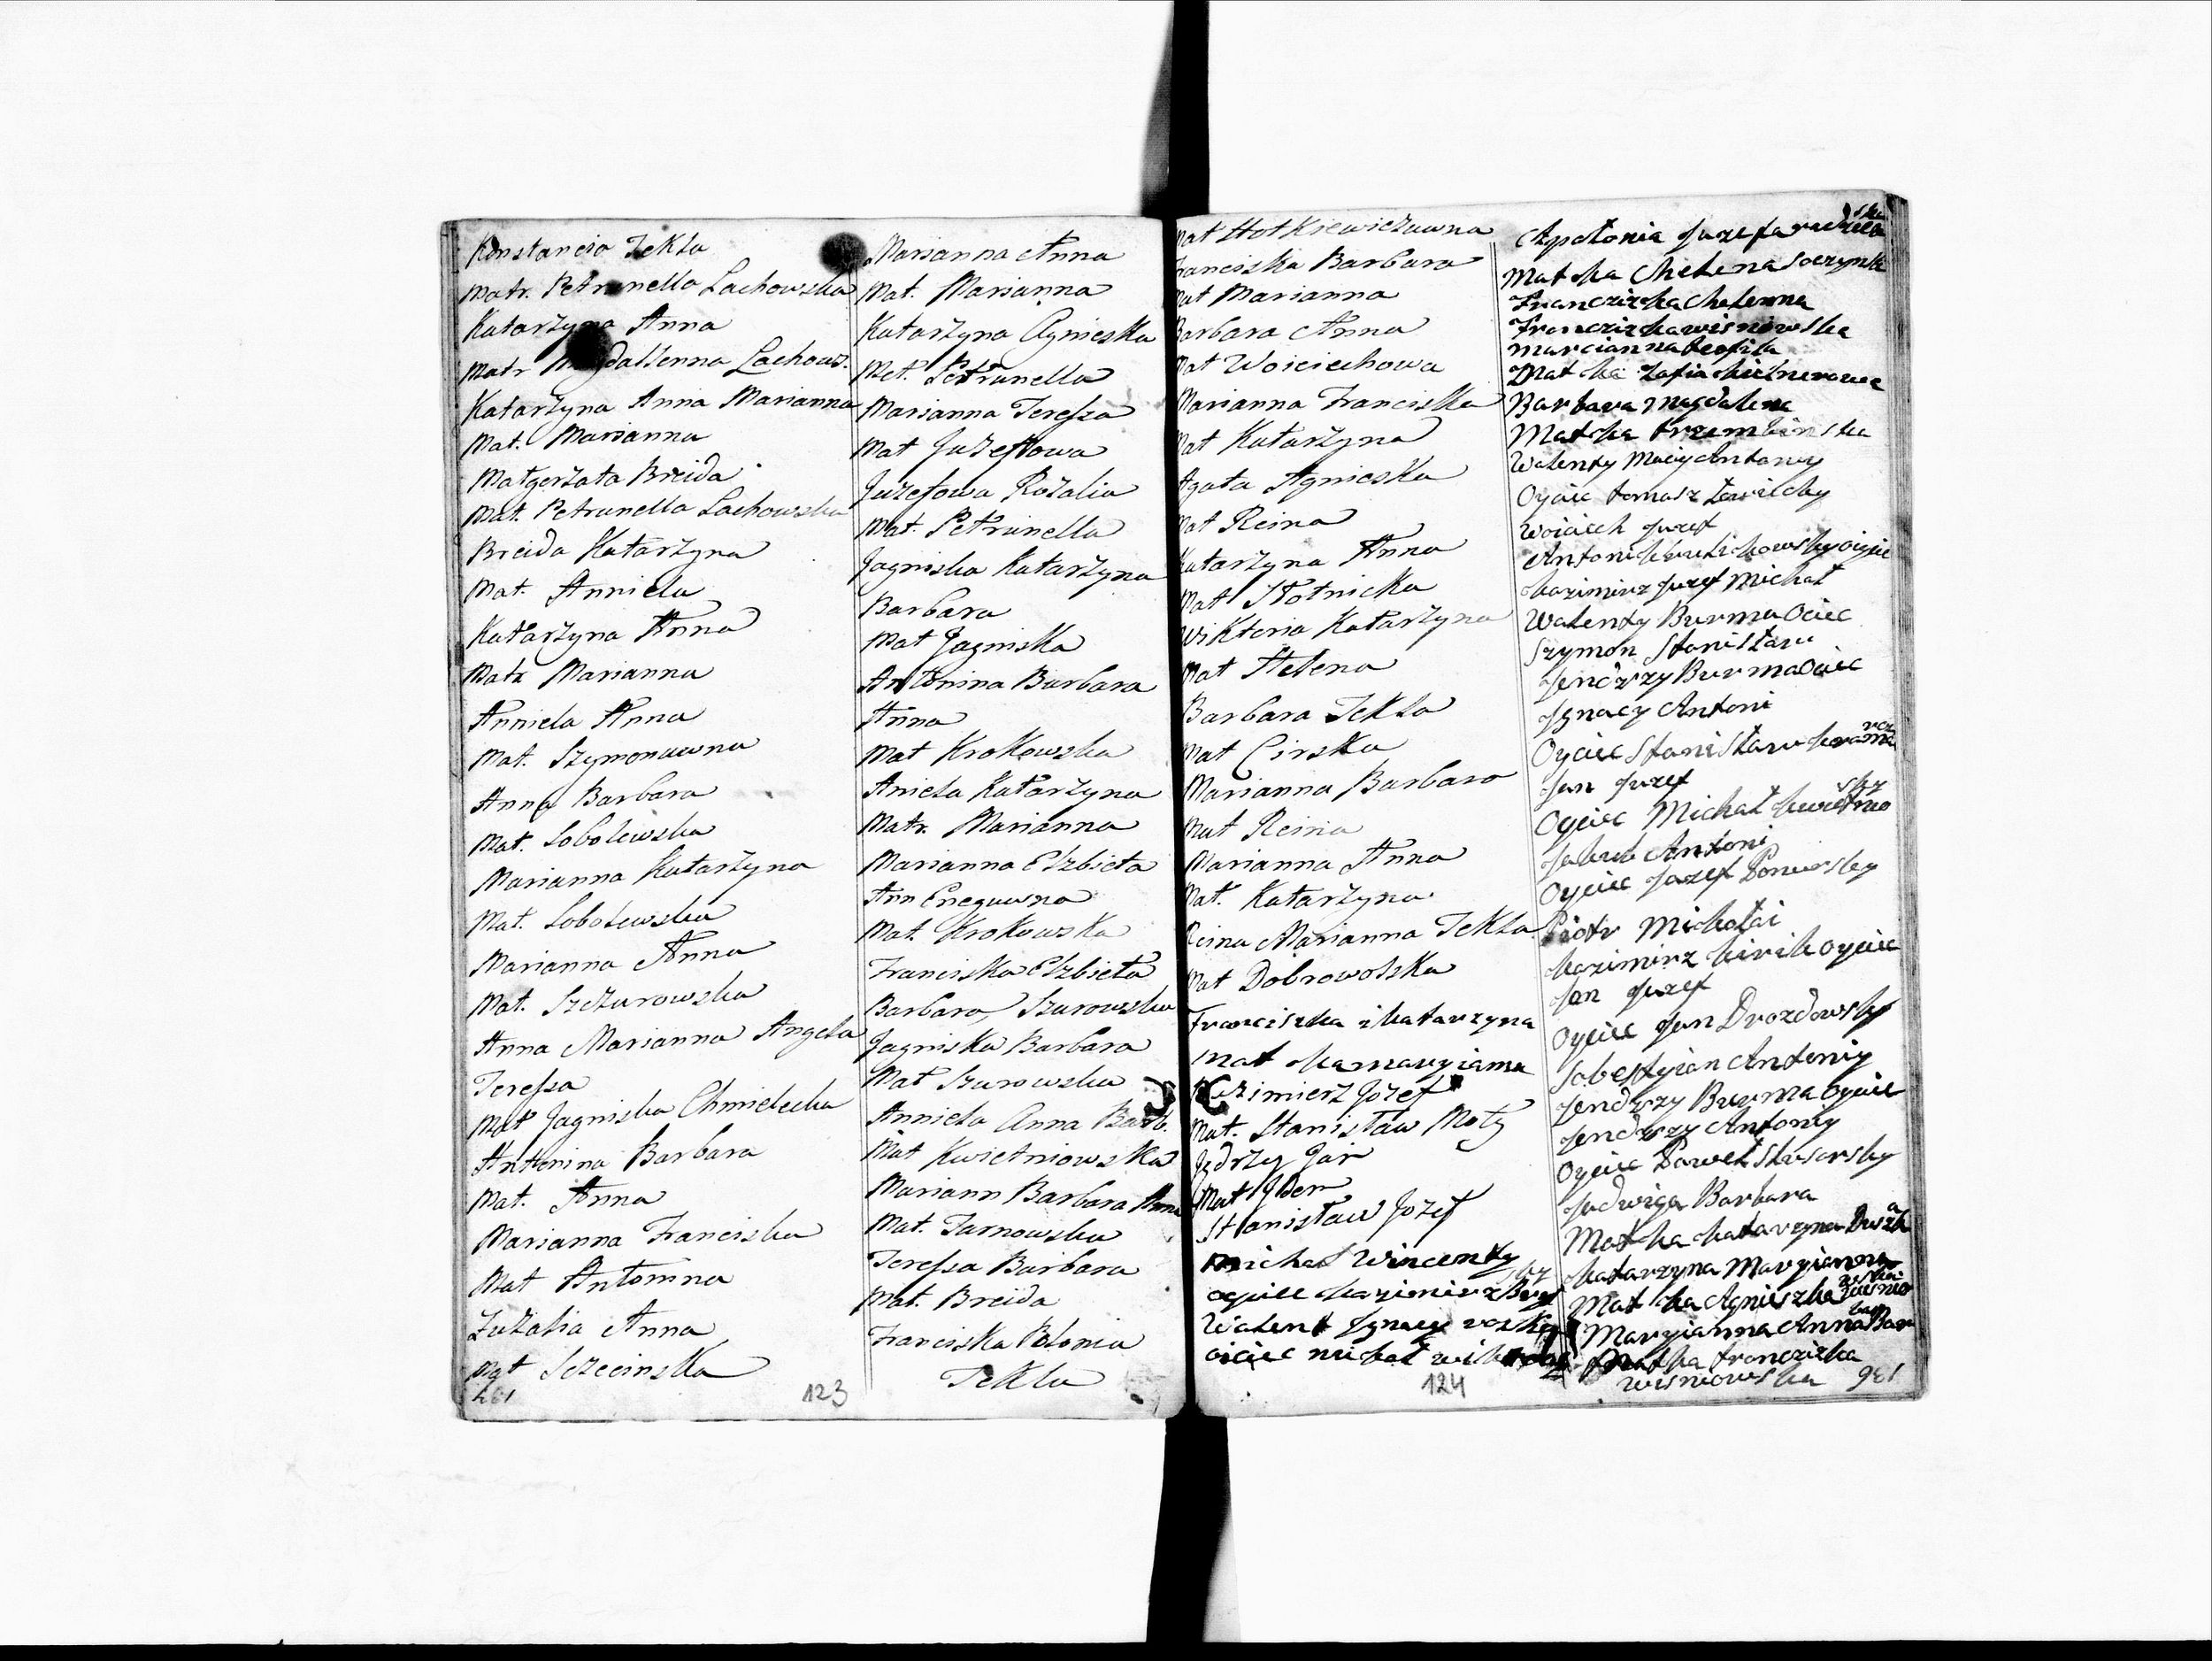 Konstancia Tekla
Matr. Petrunella Lachowska
Katarzyna Anna
Matr Magdallenna Lachows.
Katarzyna Anna Marianna
Mat. Marianna
Małgorzata Breida
Mat. Petrunella Lachowska
Breida Katarzyna
Mat. Anniela
Katarzyna Anna
Matr Marianna
Anniela Anna
Mat. Szymonawna
Anna Barbara
Mat. Sobolewska
Marianna Katarzyna
Mat. Sobolewska
Marianna Anna
Mat. Szczurowska
Anna Marianna Angela
Teressa
Mat Jagniska Chmielecka
Antonina Barbara
Mat. Anna
Marianna Franciska
Mat Antonina
Zuzalia Anna
Mat Szczecinska
123
Marianna Anna
Mat. Marianna
Katarzyna Agnieszka
Mat. Petrunella
Marianna Teressa
Mat Juzefowa
Juzefowa Rozalia
Mat. Petrunella
Jagniska Katarzyna
Barbara
Mat Jagniska
Antonina Barbara
Anna
Mat Krokowska
Aniela Katarzyna
Matr. Marianna
Marianna Elzbieta
Ann
Mat. Krokowska
Franciska Elzbieta
Barbara Szurowska
Jagniska Barbara
Mat Szurowska
Anniela Anna Barb.
Mat Kwietniowska
Mariann Barbara Anna
Mat. Tarnowska
Teressa Barbara
Mat. Breida
Franciska Polonia
Tekla
Mat Hotkiewiczuwna
Franciszka Barbara
Mat Marianna
Barbara Anna
Mat Woiciechowa
Marianna Franciszka
Mat Katarzyna
Agata Agnieszka
Mat Reina
Katarzyna Anna
Mat Złotnicka
Wiktoria Katarzyna
Mat Helena
Barbara Tekla
Mat Cirska
Marianna Barbara
Mat Reina
Marianna Anna
Mat. Katarzyna
Reina Marianna Tekla
Mat Dobrowolska
Franciszka i katarzyna
mat ka maryianna
Kazimierz Józef
Mat. Stanisław
Jędrzy Jan
Mat
Stanisław Józef
michał wincenty
ogiec kazimirz
Walent Ignacy
oiciec michał
124
Apolonia Juzefa
Matka Chelena
Franczizka chelenna
Franczizka wisniowska
marcianna teofila
Matka zofia
Barbara magdalena
Matka trzembinska
Walenty Maciy Antony
Oyciec tomasz
Woiciech Juzef
Antoni
kazimirz Juzef Michał
Walenty Burma Ociec
Szymon Stanisław
Jendrzy Burma Ociec
Ignacy Antoni
Oyciec Stanisław
Jan Juzef
Oyciec Michał
Jakub Antoni
Oyciec Jozef
Piotr Michołai
kazimirz kirik oyciec
Jan Juzef
Oyciec Jan Drozdowsky
Sobestyian Antoniy
Jendrzy Burma Oyciec
Jendrzy Antoniy
Oyciec Paweł
Jadwiga Barbara
Matka katarzyna
katarzyna Maryianna
Matka Agniszka
Maryianna Anna
Matka franczizka
wisniowska